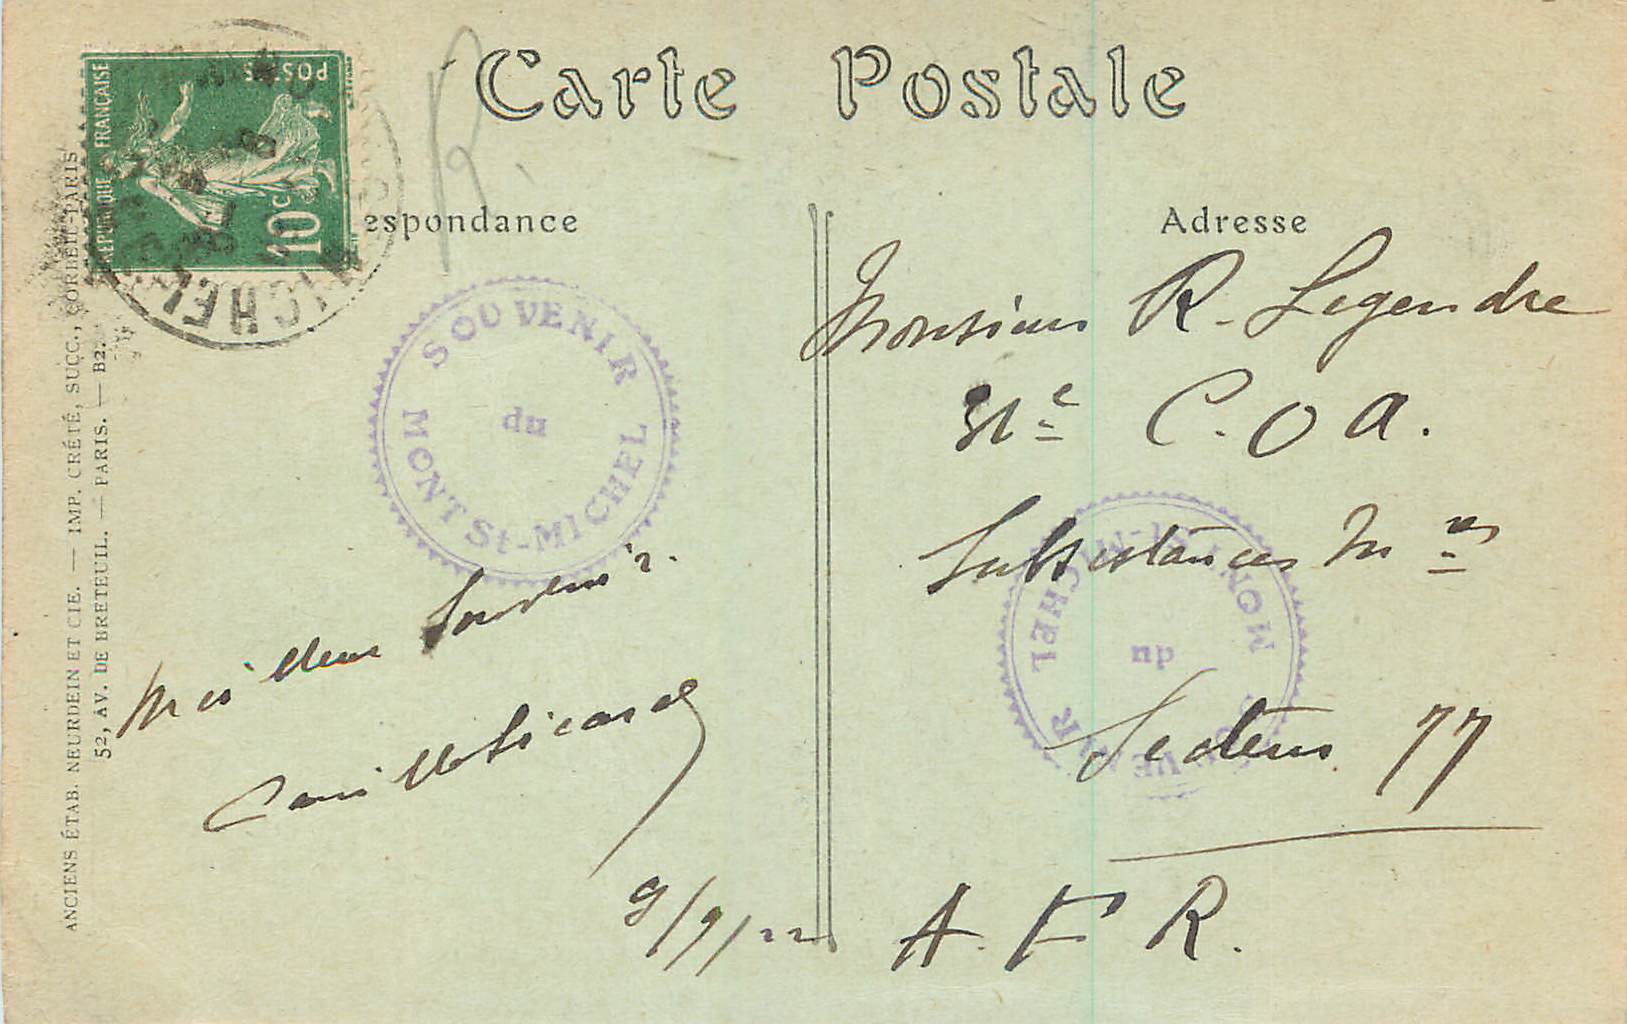 Carte Postale
RÉPUBLIQUE FRANÇAISE
POSTES
10c
espondance
Adresse
R.
SOUVENIR
du
MONT St-MICHEL
Meilleur Souvenir.
9/9/22
Monsieur R. Legendre
C.O.A.
Subsistances Mres
Secteur 77
A.F.R.
SOUVENIR
du
MONT St-MICHEL
ANCIENS ÉTAB. NEURDEIN ET CIE. — IMP. CRÉTÉ, SUCC., CORBEIL-PARIS
52, AV. DE BRETEUIL. — PARIS. — B2.